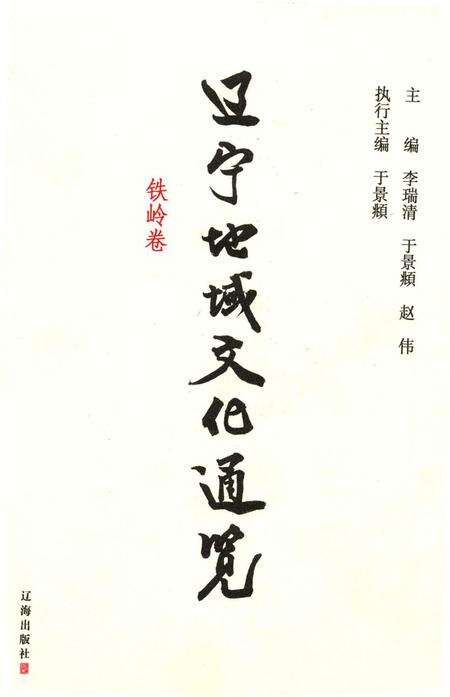 主编 李瑞清 于景頫 赵伟
执行主编 于景頫
辽宁地域文化通览
铁岭卷
辽海出版社